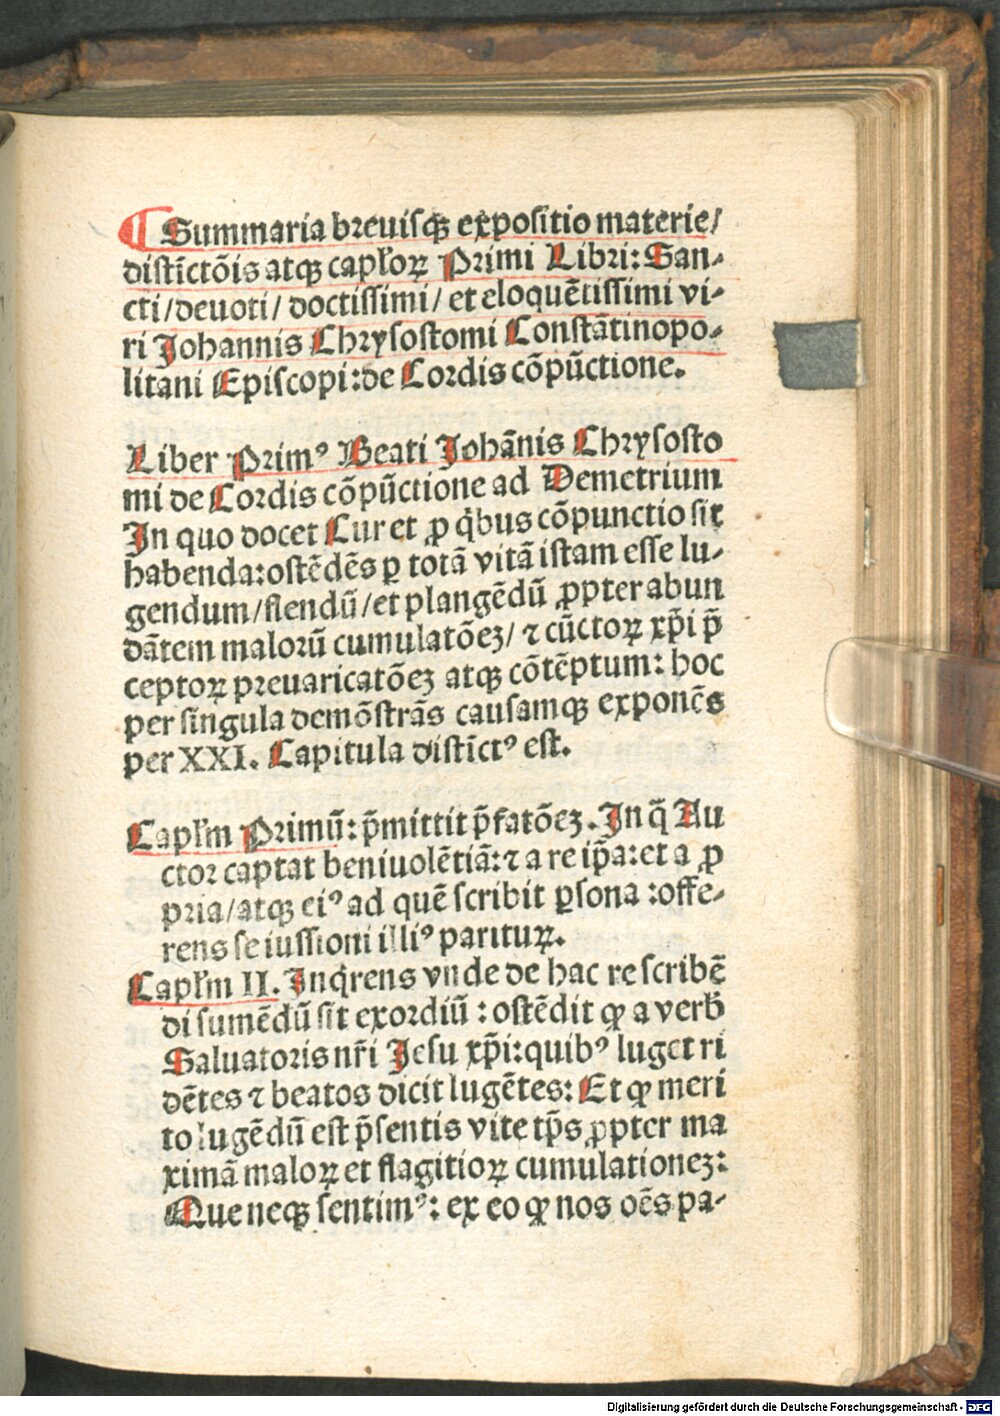 ¶ Summaria breuisqȝ expositio materie/
distīctōis atqȝ capl'oꝝ Primi Libri: San⸗
cti/deuoti/ doctissimi/ et eloquētissimi vi⸗
ri Johannis Chrysostomi Constātinopo⸗
litani Episcopi: de Cordis cōpūctione.
Liber Primꝰ Beati Johānis Chrysosto
mi de Cordis cōpūctione ad Demetrium
In quo docet Cur et ꝓ q̇bus cōpunctio sit
habenda: ostēdēs ꝑ totā vitā istam esse lu⸗
gendum/flendū/et plangēdū ꝓpter abun
dātem malorū cumulatōeȝ/ ⁊ cūctoꝝ xp̄i p̄
ceptoꝝ preuaricatōeȝ atqȝ cōtēptum: hoc
per singula demōstrās causamqȝ exponēs
per XXI. Capitula distīctꝰ est.
Capl'm Primū: p̄mittit p̄fatōeȝ. In q̄ Au
ctor captat beniuolētiā: ⁊ a re ip̄a: et a ꝓ
pria/atqȝ eiꝰ ad quē scribit ꝑsona: offe⸗
rens se iussioni illiꝰ parituꝝ.
Capl'm II. Inq̇rens vnde de hac re scribē
di sumēdū sit exordiū: ostēdit ꝙ a verb'
Saluatoris nr̄i Jesu xp̄i: quibꝰ luget ri
dētes ⁊ beatos dicit lugētes: Et ꝙ meri
to lugēdū est p̄sentis vite tp̄s ꝓpter ma
ximā maloꝝ et flagitioꝝ cumulationeȝ:
Que neqȝ sentimꝰ: ex eo ꝙ nos oēs pa⸗
Digitalisierung gefördert durch die Deutsche Forschungsgemeinschaft - DFG